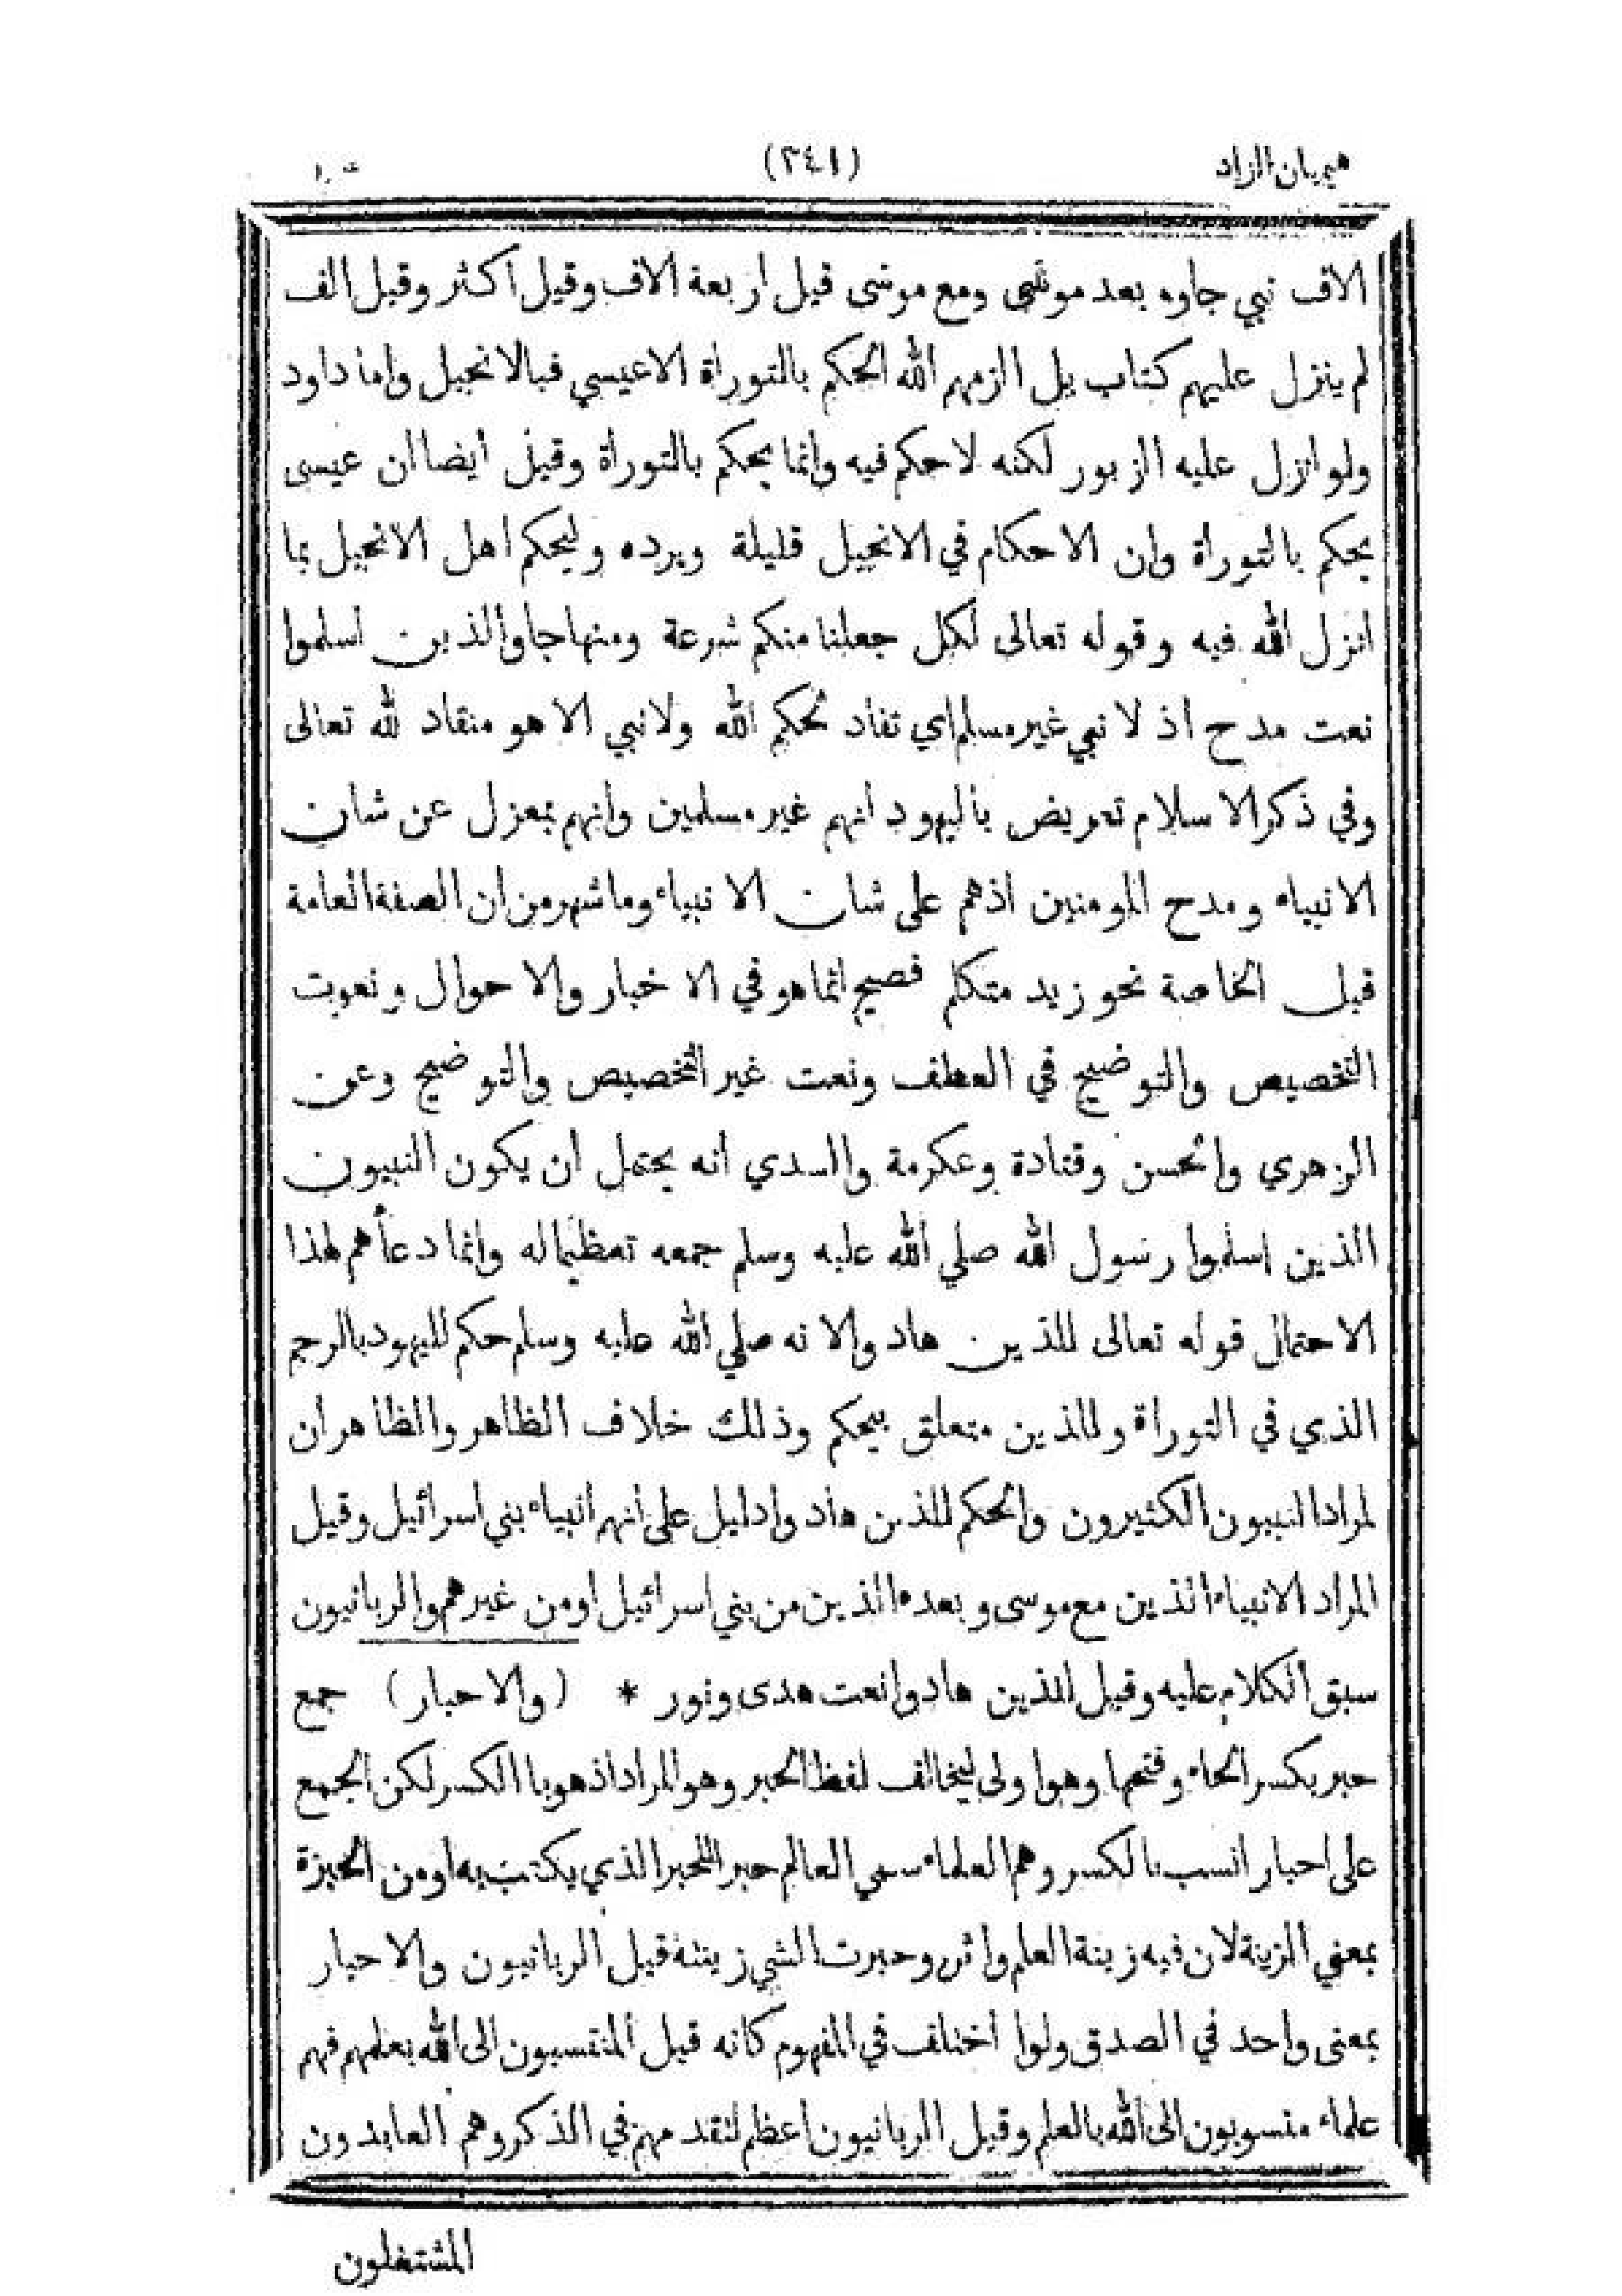 هيميان الزاد (٢٤١)
الاف نبي جاوه بعد موسى ومع موسى قيل اربعة الاف وقيل اكثر وقيل الف
لم ينزل عليهم كتاب بل الزمهم الله الحكم بالتوراة الا عيسى فبالانجيل واما داود
ولو انزل عليه الزبور لكنه لا حكم فيه وانما يحكم بالتوراة وقيل ايضا ان عيسى
يحكم بالتوراة وان الاحكام في الانجيل قليلة ويرده وليحكم اهل الانجيل بما
انزل الله فيه وقوله تعالى لكل جعلنا منكم شرعة ومنهاجا والذين اسلموا
نعت مدح اذ لا نبي غير مسلم اي تفاد لحكم الله ولا نبي الا هو منقاد لله تعالى
وفي ذكر الاسلام تعريض باليهود انهم غير مسلمين وانهم بمعزل عن شان
الانبياء ومدح المومنين اذ هم على شان الانبياء وما شهر من ان الصفة العامة
قبل الخاصة نحو زيد متكلم فصيح انما هو في الاخبار والاحوال ونعوت
التخصيص والتوضيح في العطف ونعت غير التخصيص والتوضيح وعن
الزهري والحسن وقتادة وعكرمة والسدي انه يحتمل ان يكون النبيون
الذين اسلموا رسول الله صلي الله عليه وسلم جمعه تعظيما له وانما دعاهم لهذا
الاحتمال قوله تعالى للذين هادوا لانه صلي الله عليه وسلم حكم لليهود بالرجم
الذي في التوراة وللذين متعلق بيحكم وذلك خلاف الظاهر والظاهر ان
لمراد النبيون الكثيرون والحكم للذين هادوا دليل على انهم انبياء بني اسرائيل وقيل
المراد الانبياء الذين مع موسى وبعده الذين من بني اسرائيل او من غيرهم والربانيون
سبق الكلام عليه وقيل للذين هادوا نعت هدى ونور * (والاحبار) جمع
حبر بكسر الحاء وفتحها وهو اولى ليخالف لفظ الحبر وهو المراد اذ هو با الكسر لكن الجمع
على احبار انسب بالكسر وهم العلماء سمي العالم حبر اللحبر الذي يكتب به او من الحبرة
بمعني الزينة لان فيه زينة العلم واثره وحبرت الشي زينته قيل الربانيون والاحبار
بمعنى واحد في الصدق ولوا اختلف في المفهوم كانه قيل المنتسبون الى الله بعلمهم فهم
علماء منسوبون الى الله بالعلم وقيل الربانيون اعظم لتقدمهم في الذكر وهم العابدون
المشتغلون